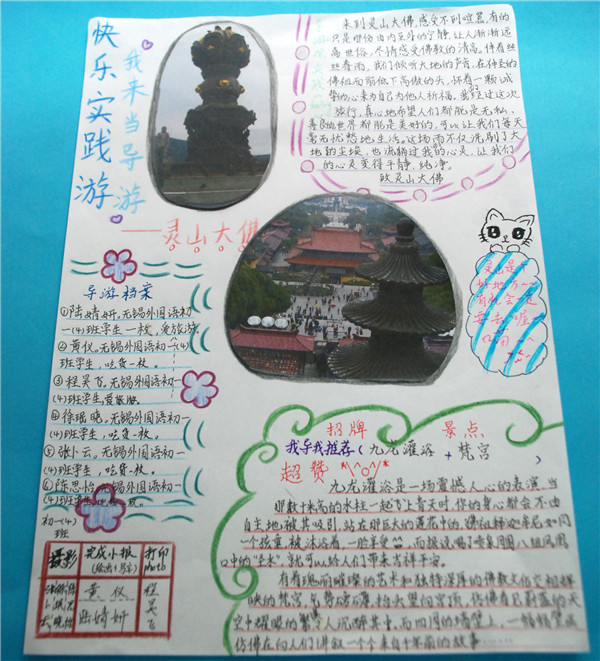 快乐实践游
我来当导游
——灵山大佛
来到灵山大佛,感受不到喧嚣,有的
只是那份由内至外的宁静,让人渐渐远
离世俗,尽情感受佛教的清高。伴着丝
丝春雨,我们倾听大地的声音,在伟岸的
佛祖面前低下高傲的头,怀着一颗诚
挚的心来为自己为他人祈福。经过这次
旅行,真心地希望人们都能是无私、
善良的世界都能是美好的,可以让我们每天
毫无忧愁地生活。这场雨不仅洗刷了大
地的尘埃,也流淌过我的心灵,让我们
的心灵变得平静、纯净。
致灵山大佛
灵山是个
好地方
有机会一定
要去喔
导游档案
①陆婧妍,无锡外国语初
一(4)班学生一枚,爱旅游
②黄仪,无锡外国语初一(4)
班学生,吃货一枚。
③程昊飞,无锡外国语初一
(4)班学生,爱旅游。
④徐瑶晓,无锡外国语初一
(4)班学生,吃货一枚。
⑤张卜云,无锡外国语初一
(4)班学生,吃货一枚。
⑥陈思怡,无锡外国语初一
(4)班学生,吃货一枚。
初一(4)
班
摄影 完成小报 打印
(绘画+写字) photo
黄仪 程昊飞
陆婧妍
招牌 景点
我导我推荐(九龙灌浴+梵宫)
超赞 *\^o^/*
九龙灌浴是一场震撼人心的表演,当
那数十米高的水柱一起飞上青天时,你的身心都会不由
自主地被其吸引,站在那巨大的莲花中的,佛祖释迦牟尼如同
一个孩童,被沐浴着,一脸享受^^,而据说喝了喷泉周围八组凤凰
口中的"圣水",就可以给人们带来吉祥平安。
有着瑰丽璀璨的艺术和独特深厚的佛教文化交相辉
映的梵宫,气势磅礴,抬头望向穹顶,仿佛看见蔚蓝的天
空中耀眼的繁星,令人沉醉其中,而四周的墙壁上,
仿佛在向人们讲叙一个个来自千年前的故事